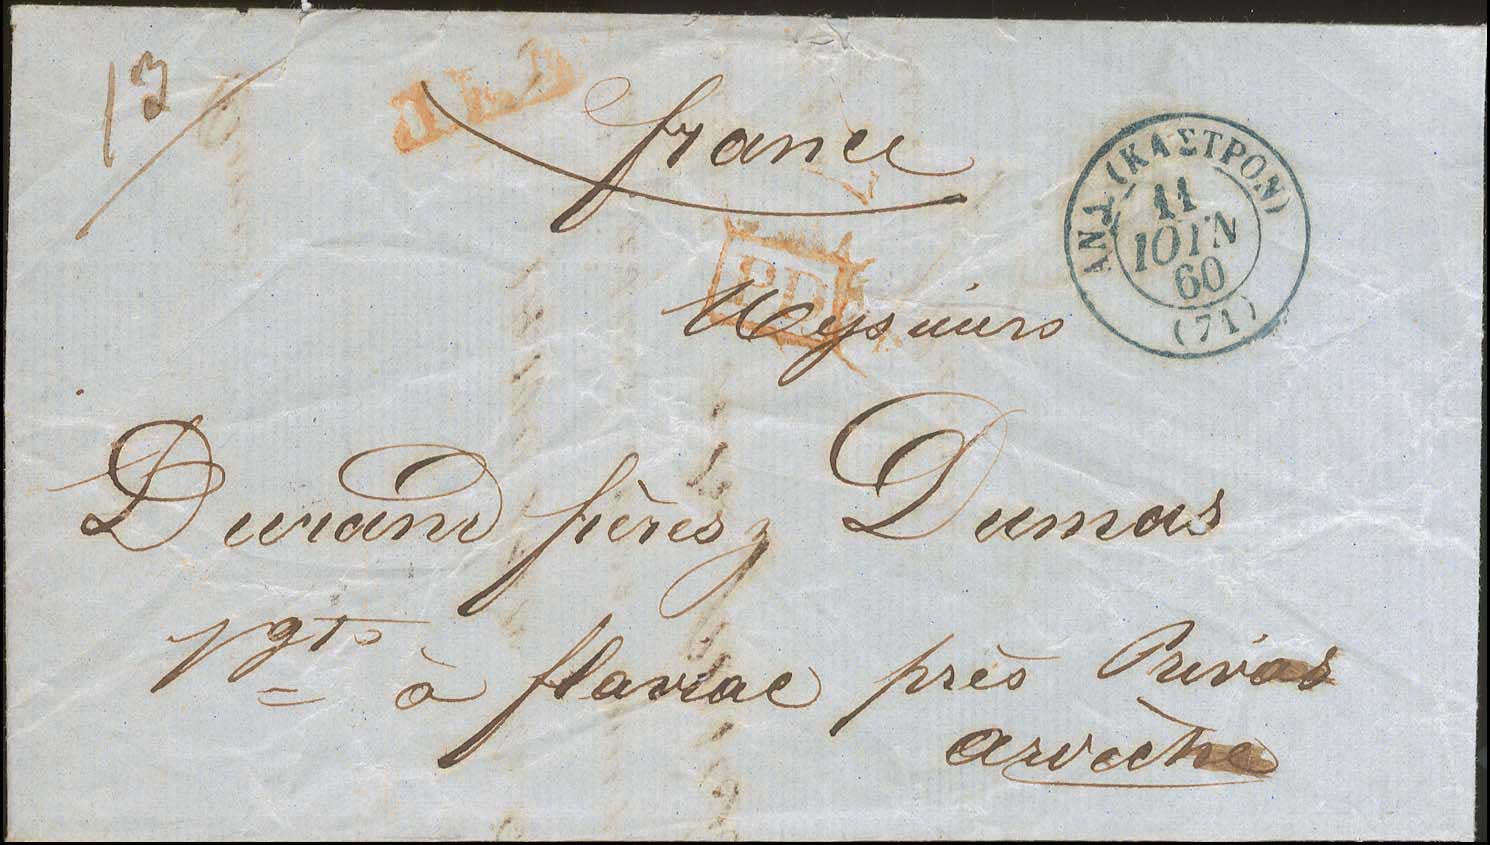 13
france
P.D.
ΑΝΔ. (ΚΑΣΤΡΟΝ)
11
ΙΟΥΝ
60
(71)
Messieurs
Durand frères, Dumas
à flaviac près Privas
ardèche